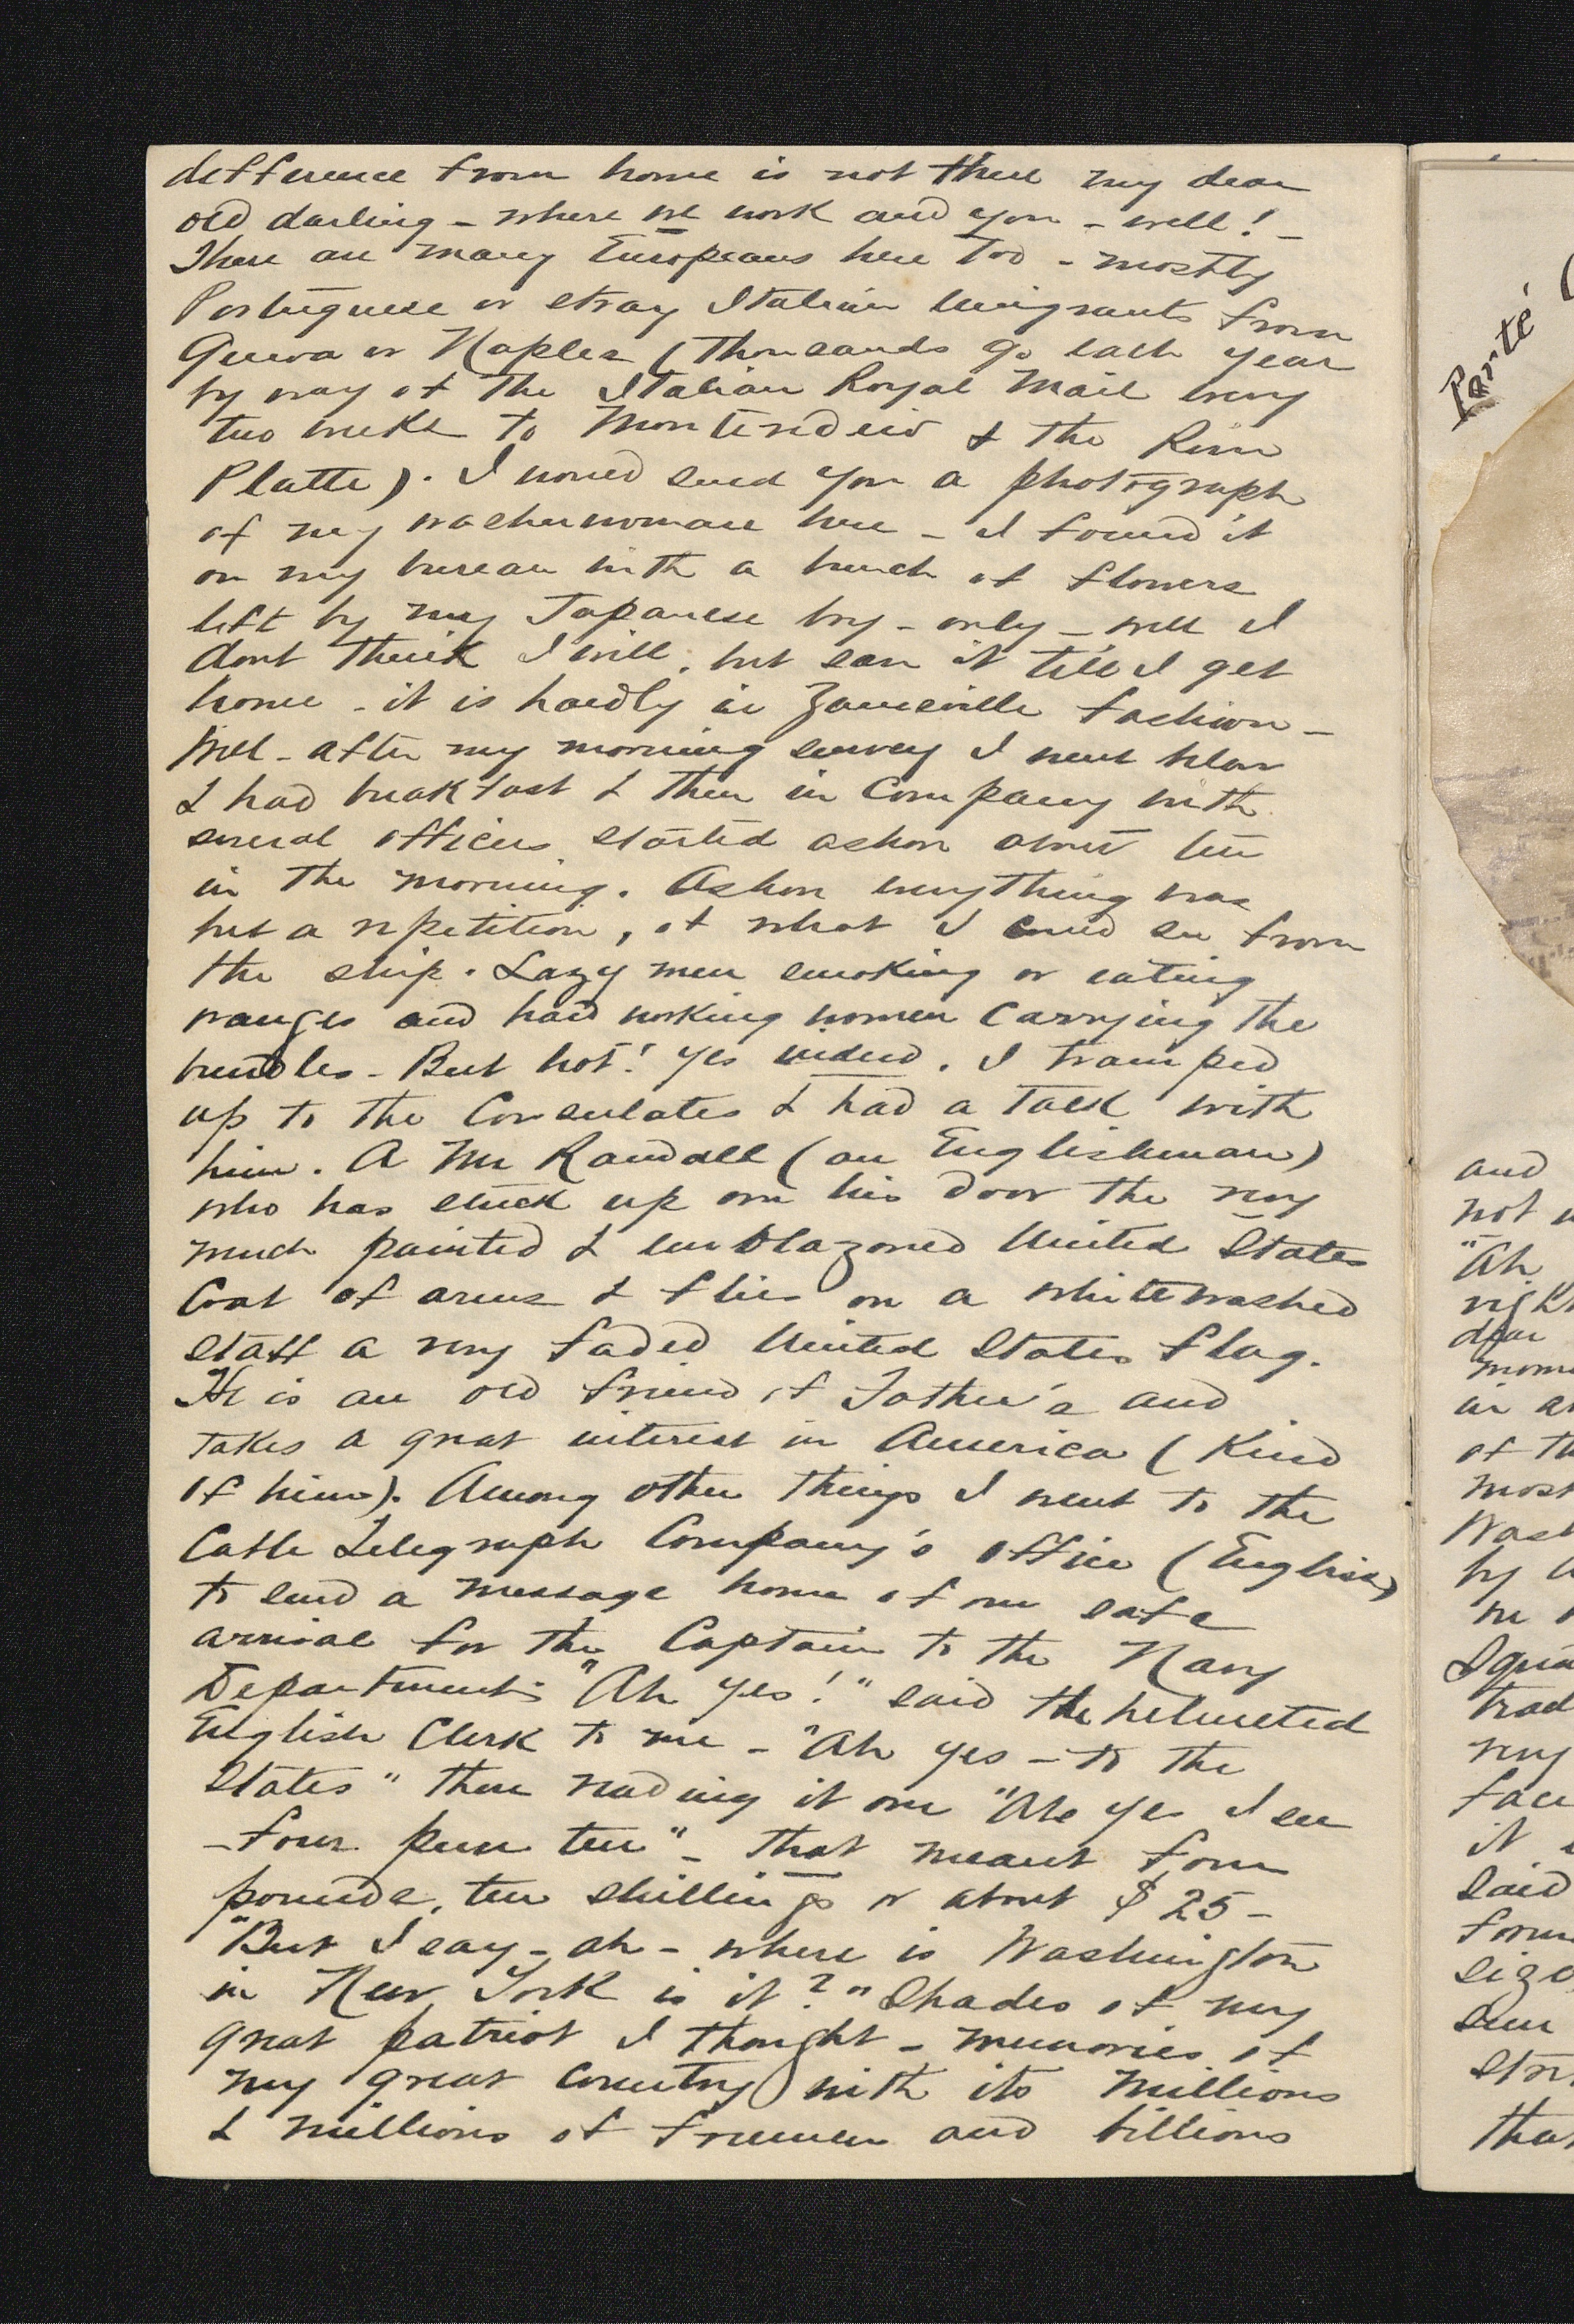 difference from home is not there my dear
old darling - where we work and you - well! -
There are many Europeans here too - mostly
Portuguese or stray Italian emigrants from
Genoa or Naples (thousands go each year
by way of the Italian Royal Mail every
two weeks to Montevideo & the River
Platte). I would send you a photograph
of my washerwoman here - I found it
on my bureau with a bunch of flowers
left by my Japanese boy - only - well I
dont think I will. but save it till I get
home - it is hardly in Zanesville fashion -
Well - after my morning survey I went below
& had breakfast & then in company with
several officers started ashore about ten
in the morning. Ashore everything was
but a repetition, of what I could see from
the ship. Lazy men smoking or eating
oranges and hard working women carrying the
bundles - But hot! yes indeed. I tramped
up to the Consulates & had a talk with
him. A Mr Randall (an Englishman)
who has stuck up over his door the very
much painted & emblazoned United States
Coat of arms & flies on a whitewashed
staff a very faded United States flag.
He is an old friend of Father's and
takes a great interest in America (Kind
of him). Among other things I went to the
Cable Telegraph Company's office (English)
to send a message home of our safe
arrival for the Captain to the Navy
Department. "Ah yes!" said the helmeted
English Clerk to me - "Ah yes - to the
States" then reading it over "Ah yes I see
- four pun ten" - that meant four
pounds, ten shillings or about $25 -
"But I say - ah - where is Washington
in New York is it?" Shades of my
great patriot I thought - memories of
my great country with its millions
& millions of freemen and billions
Parté
and
not
"Ah
dear
in
of
most
by
very
it
said
that